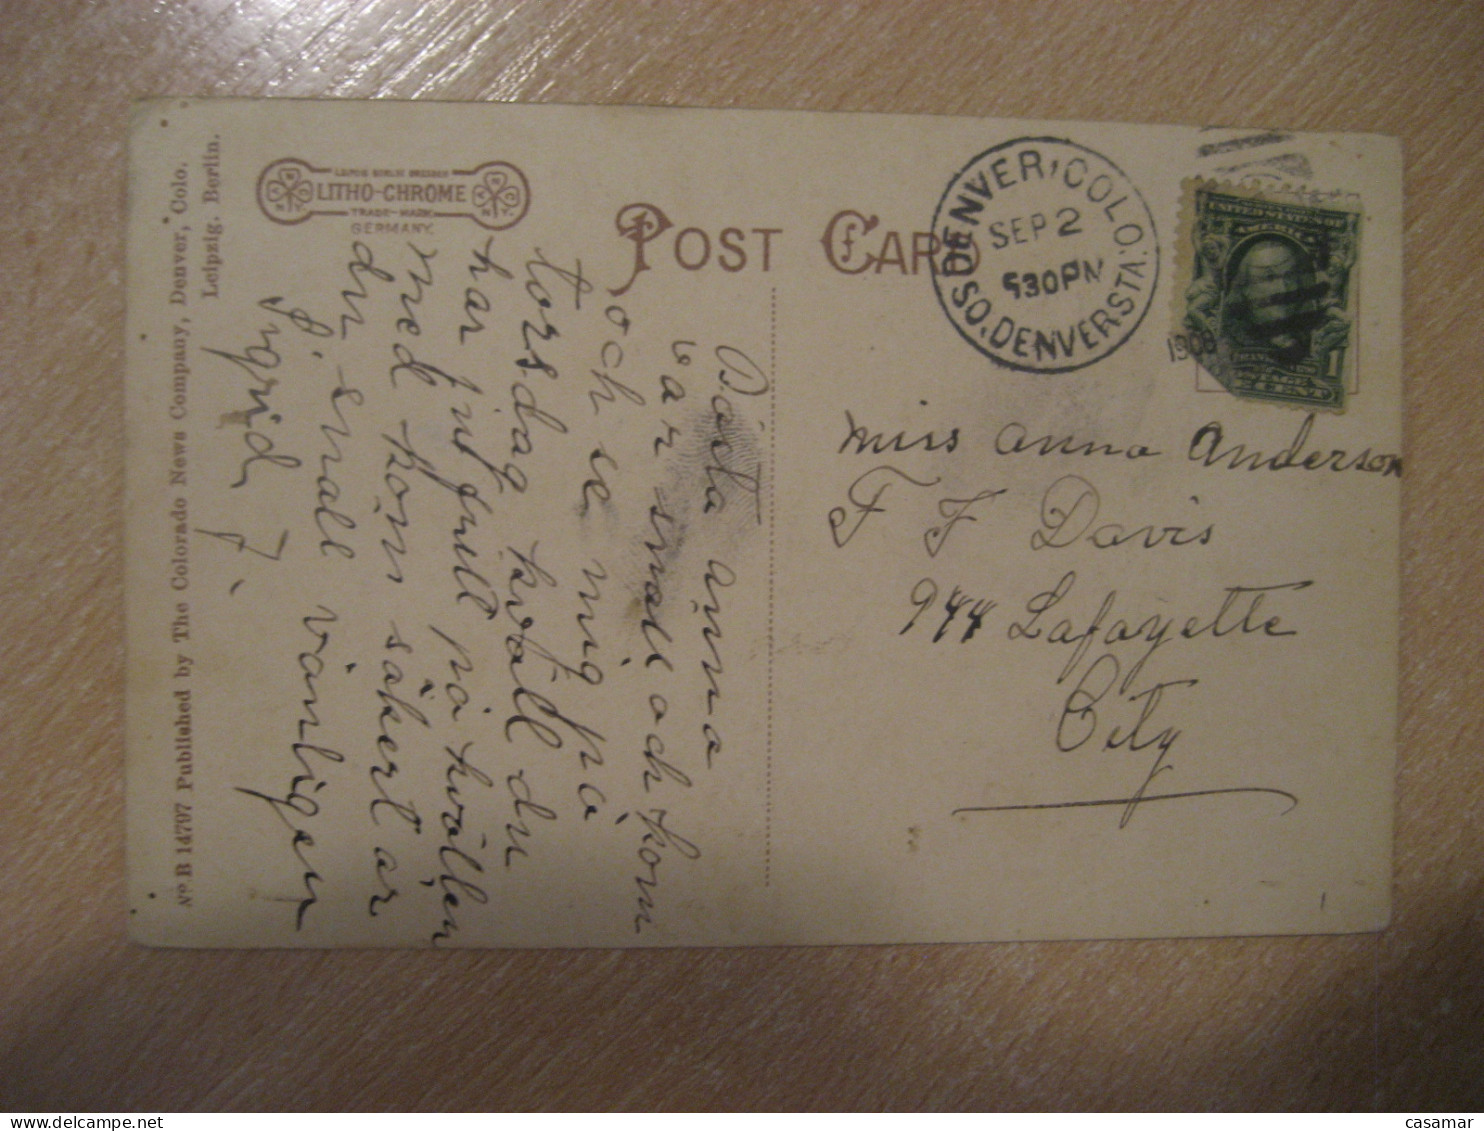 No B 14797 Published by The Colorado News Company, Denver, Colo.
Leipzig. Berlin.
LEIPZIG BERLIN DRESDEN
LITHO-CHROME
TRADE-MARK
GERMANY.
POST CARD
DENVER, COLO.
SEP 2
530PM
SO. DENVER STA.
1908
UNITED STATES OF
AMERICA
1
Miss Anna Anderson
F F Davis
944 Lafayette
City
Bästa Anna
var snäll och kom
och se mig på
torsdag kväll du
har jut full på kvällen
med kom säkert ar
du snäll vänligen
Sigrid J.
casamar